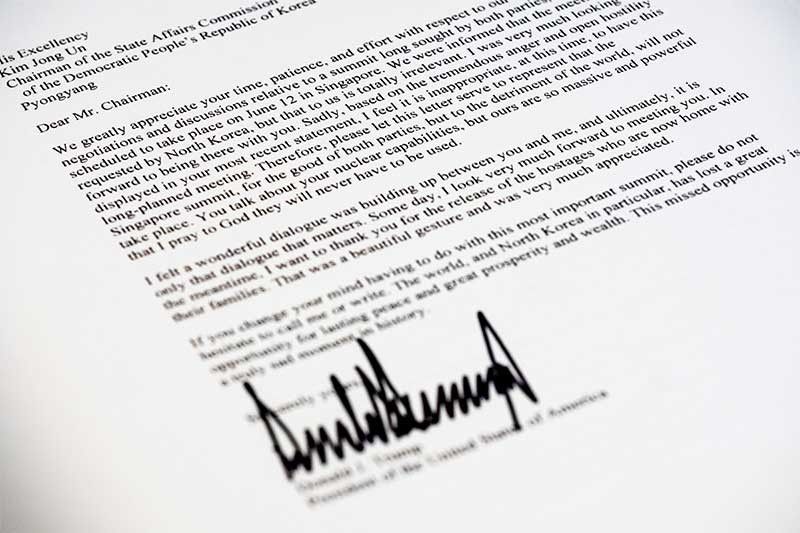 His Excellency
Kim Jong Un
Chairman of the State Affairs Commission
of the Democratic People's Republic of Korea
Pyongyang
Dear Mr. Chairman:
We greatly appreciate your time, patience, and effort with respect to our
negotiations and discussions relative to a summit long sought by both parties,
scheduled to take place on June 12 in Singapore. We were informed that the meeting
requested by North Korea, but that to us is totally irrelevant. I was very much looking
forward to being there with you. Sadly, based on the tremendous anger and open hostility
displayed in your most recent statement, I feel it is inappropriate, at this time, to have this
long-planned meeting. Therefore, please let this letter serve to represent that the
Singapore summit, for the good of both parties, but to the detriment of the world, will not
take place. You talk about your nuclear capabilities, but ours are so massive and powerful
that I pray to God they will never have to be used.
I felt a wonderful dialogue was building up between you and me, and ultimately, it is
only that dialogue that matters. Some day, I look very much forward to meeting you. In
the meantime, I want to thank you for the release of the hostages who are now home with
their families. That was a beautiful gesture and was very much appreciated.
If you change your mind having to do with this most important summit, please do not
hesitate to call me or write. The world, and North Korea in particular, has lost a great
opportunity for lasting peace and great prosperity and wealth. This missed opportunity is
a truly sad moment in history.
Donald J. Trump
President of the United States of America